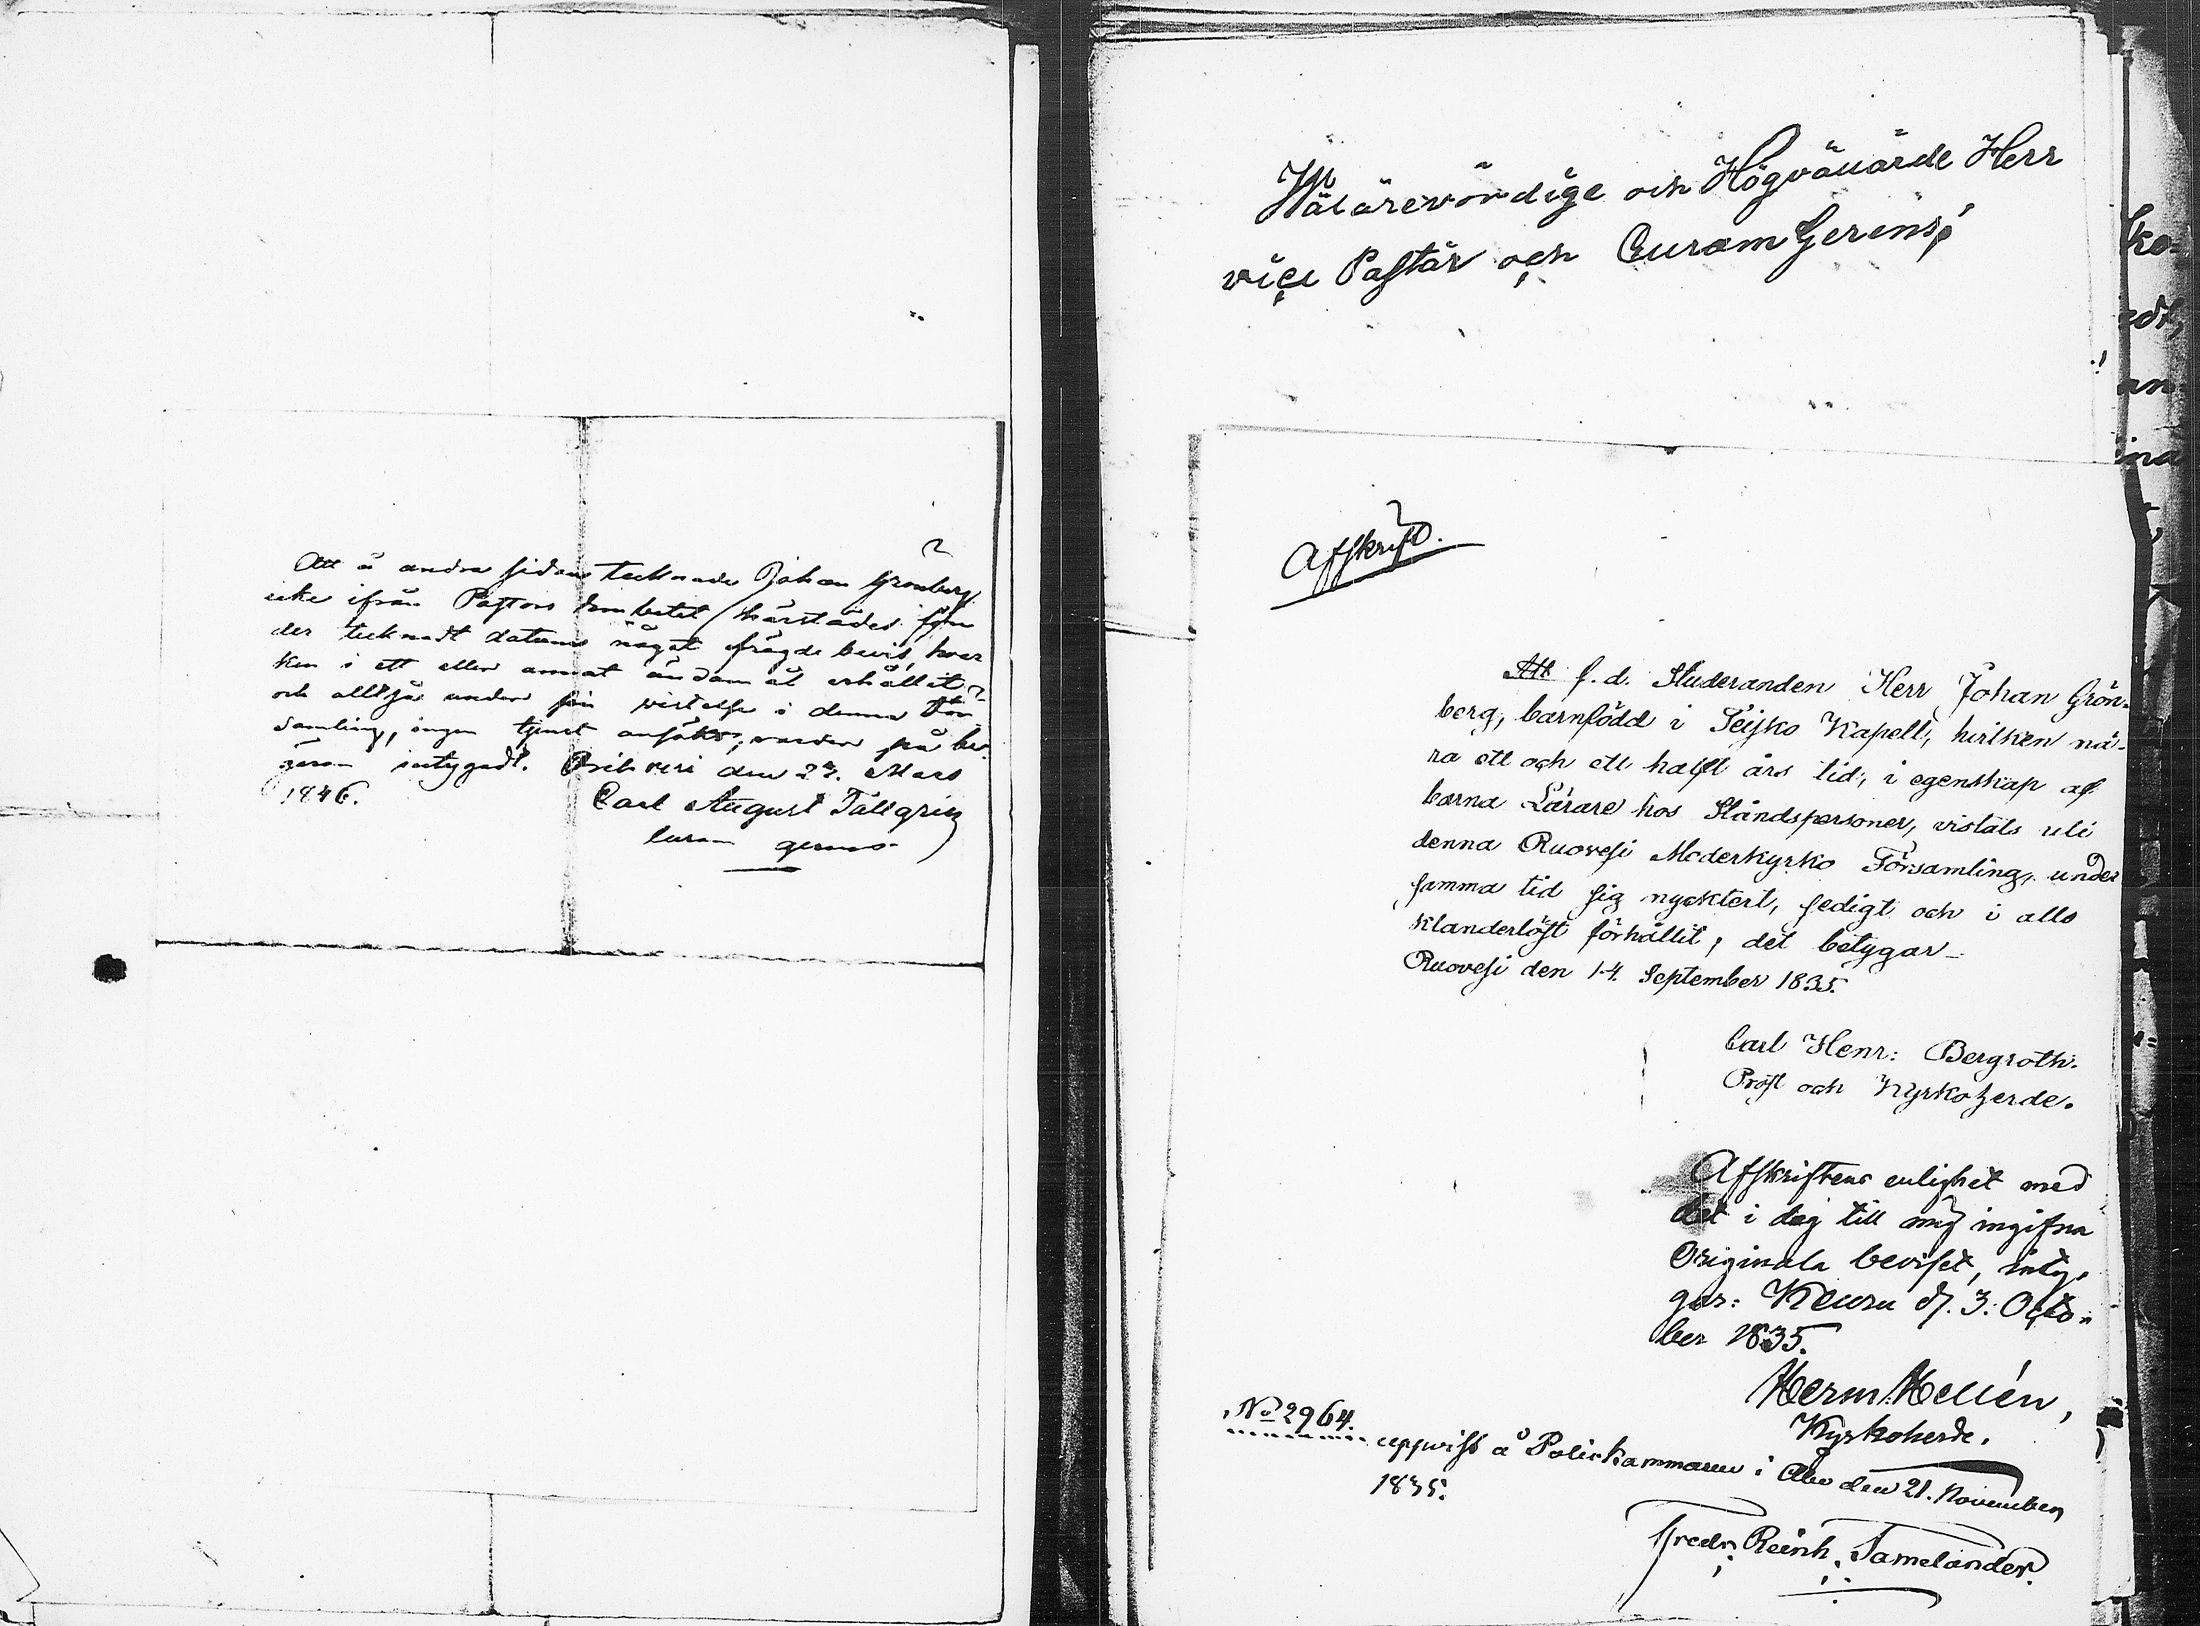 Att å andra sidan tecknade Johan Grönberg
icke ifrån Pastors Embetet härstädes före
der tecknadt datum något frägde bevis, hvar
ken i ett eller annat ändamål erhållit
och alltså under sin vistelse i denna För
samling, ingen tjenst ansökt, varder på be
gäran intygadt. Birkkala den 23. Mars
1846.
Carl August Tallgren
Curam gerens
Wälärevördige och Högvällärde Herr
vice Pastor och Curam Gerens!
Afskrift.
Att f. d. Studeranden Herr Johan Grön-
berg, barnfödd i Teisko Kapell, hvilken nä-
ra ett och ett halft års tid, i egenskap af
barna Lärare hos Ståndspersoner, vistats uti
denna Ruovesi Moderkyrko Församling, under
samma tid sig nycktert, sedigt och i allo
klanderlöst förhållit, det betygar
Ruovesi den 14. September 1835.
Carl Henr: Bergroth.
Prost och Kyrkoherde.
Afskriftens enlighet med
det i dag till mig ingifna
Originala beviset, inty-
gar: Keuru d. 3. Octo-
ber 1835.
Herm: Hellén,
Kyrkoherde.
No 2964.
uppvist å Poliskammaren i Åbo den 21. November
1835.
Fredr. Reinh. Tamelander.
ko-
edt,
an
ina